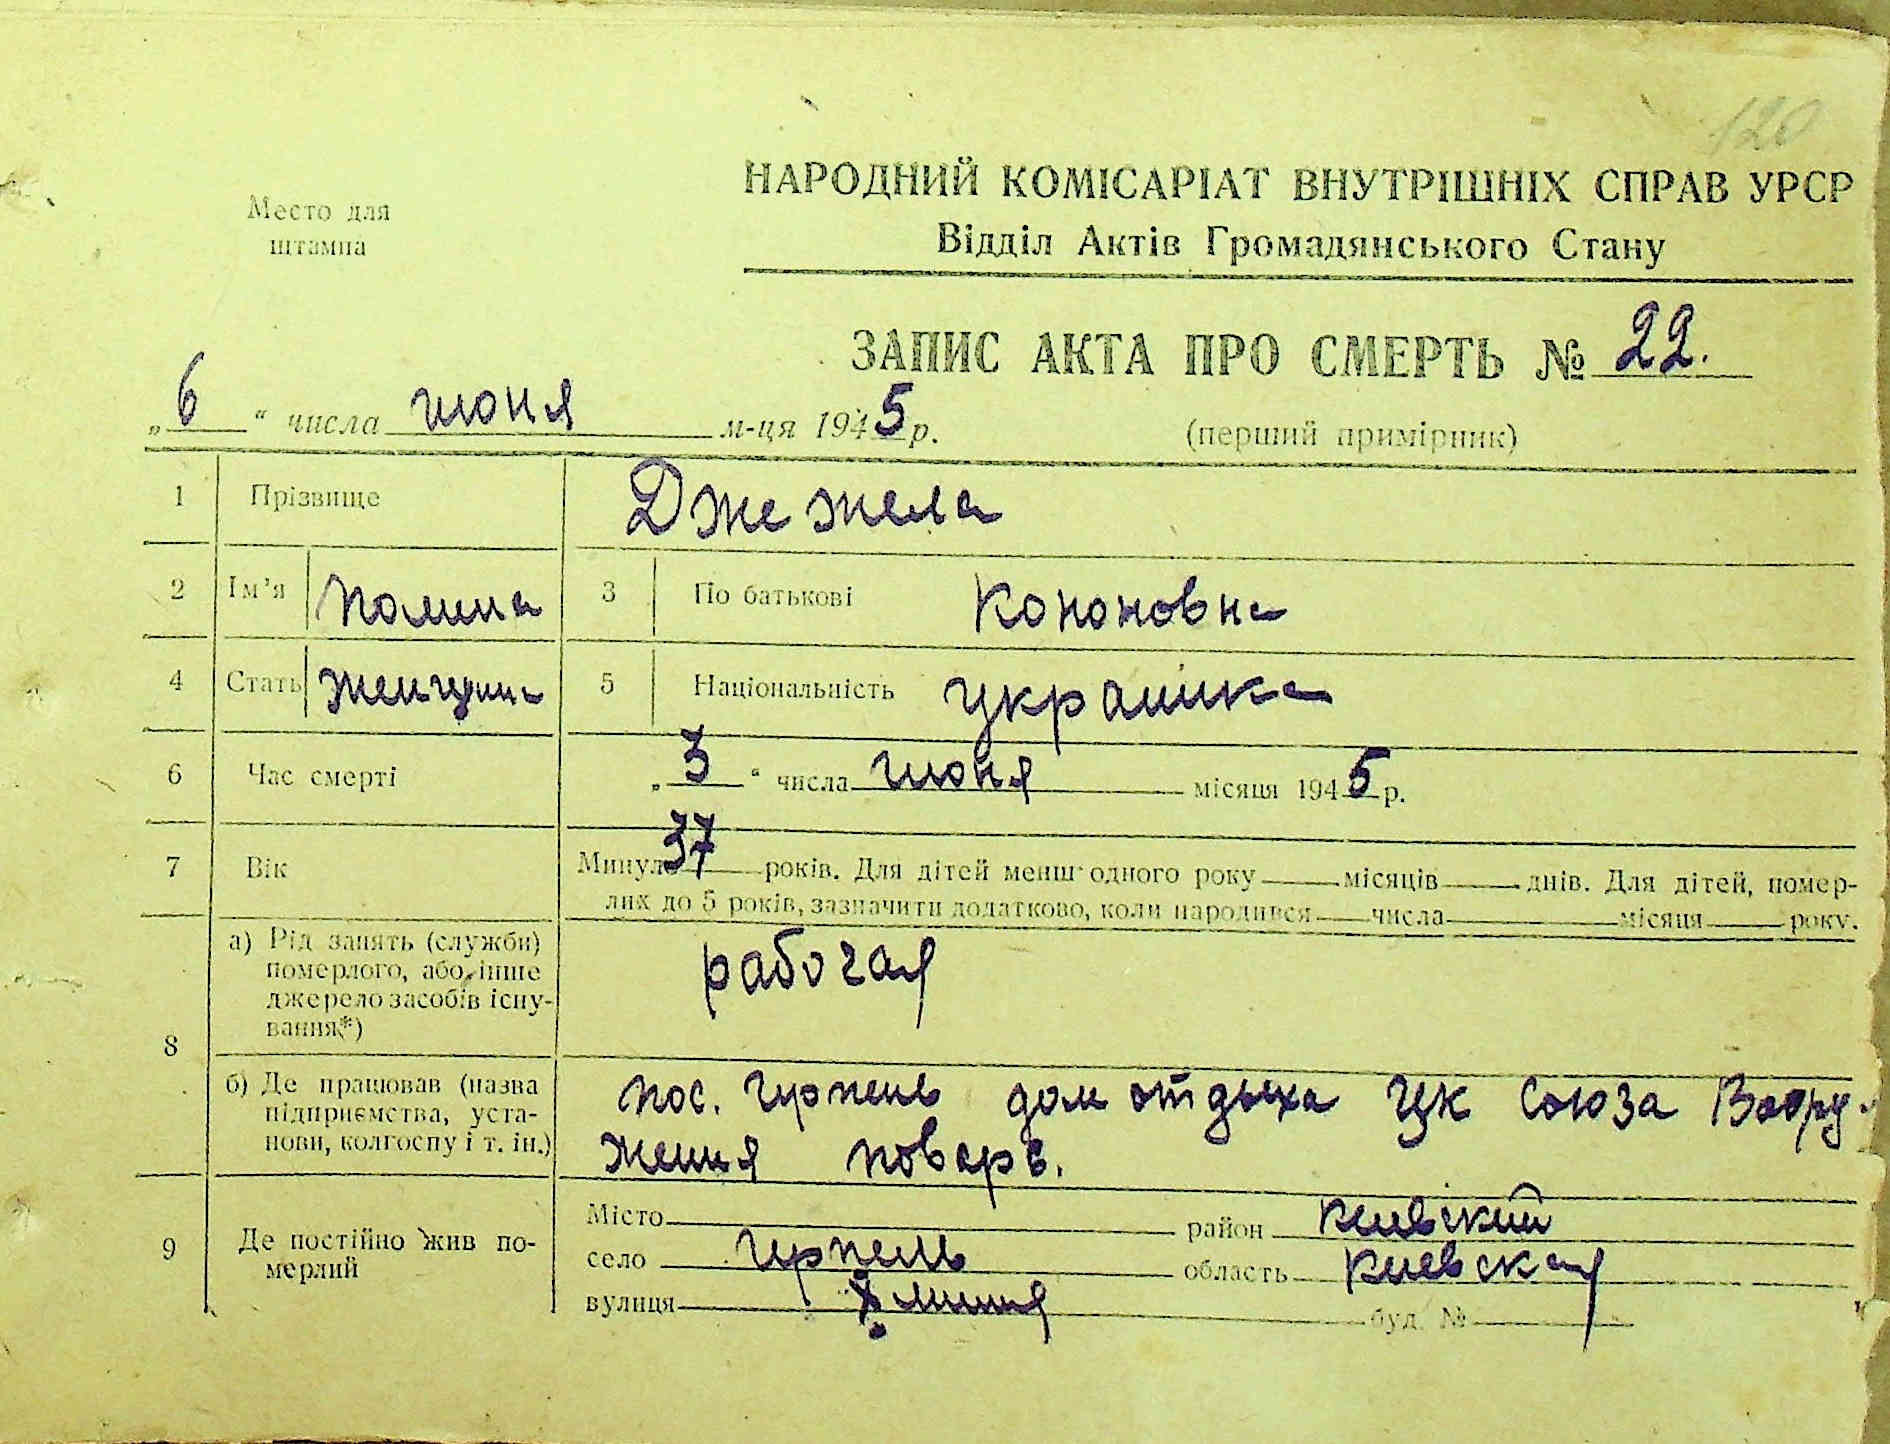 120
Место для
штампа
НАРОДНИЙ КОМІСАРІАТ ВНУТРІШНІХ СПРАВ УРСР
Відділ Актів Громадянського Стану
ЗАПИС АКТА ПРО СМЕРТЬ № 22.
„ 6 “ числа июня м-ця 1945 р.
(перший примірник)
1 Прізвище Джежела
2 Ім'я Полина 3 По батькові Кононовна
4 Стать женщина 5 Національність украинка
6 Час смерті „ 3 “ числа июня місяця 1945 р.
7 Вік Минуло 37 років. Для дітей менш одного року місяців днів. Для дітей, помер-
лих до 5 років, зазначити додатково, коли народився числа місяця року.
8 а) Рід занять (служби)
померлого, або інше
джерело засобів існу-
вання*)
рабочая
б) Де працював (назва
підприємства, уста-
нови, колгоспу і т. ін.)
пос. Ирпень дом отдыха ЦК Союза Воору-
жения поваръ.
9 Де постійно жив по-
мерлий
Місто район Киевский
село Ирпень область Киевская
вулиця X линия буд. №